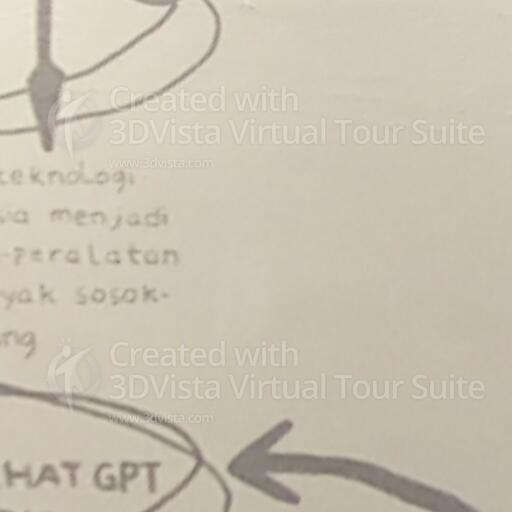 Created with
3DVista Virtual Tour Suite
www.3dvista.com
teknologi
ia menjadi
-peralatan
yak sosok-
ng
Created with
3DVista Virtual Tour Suite
www.3dvista.com
HAT GPT